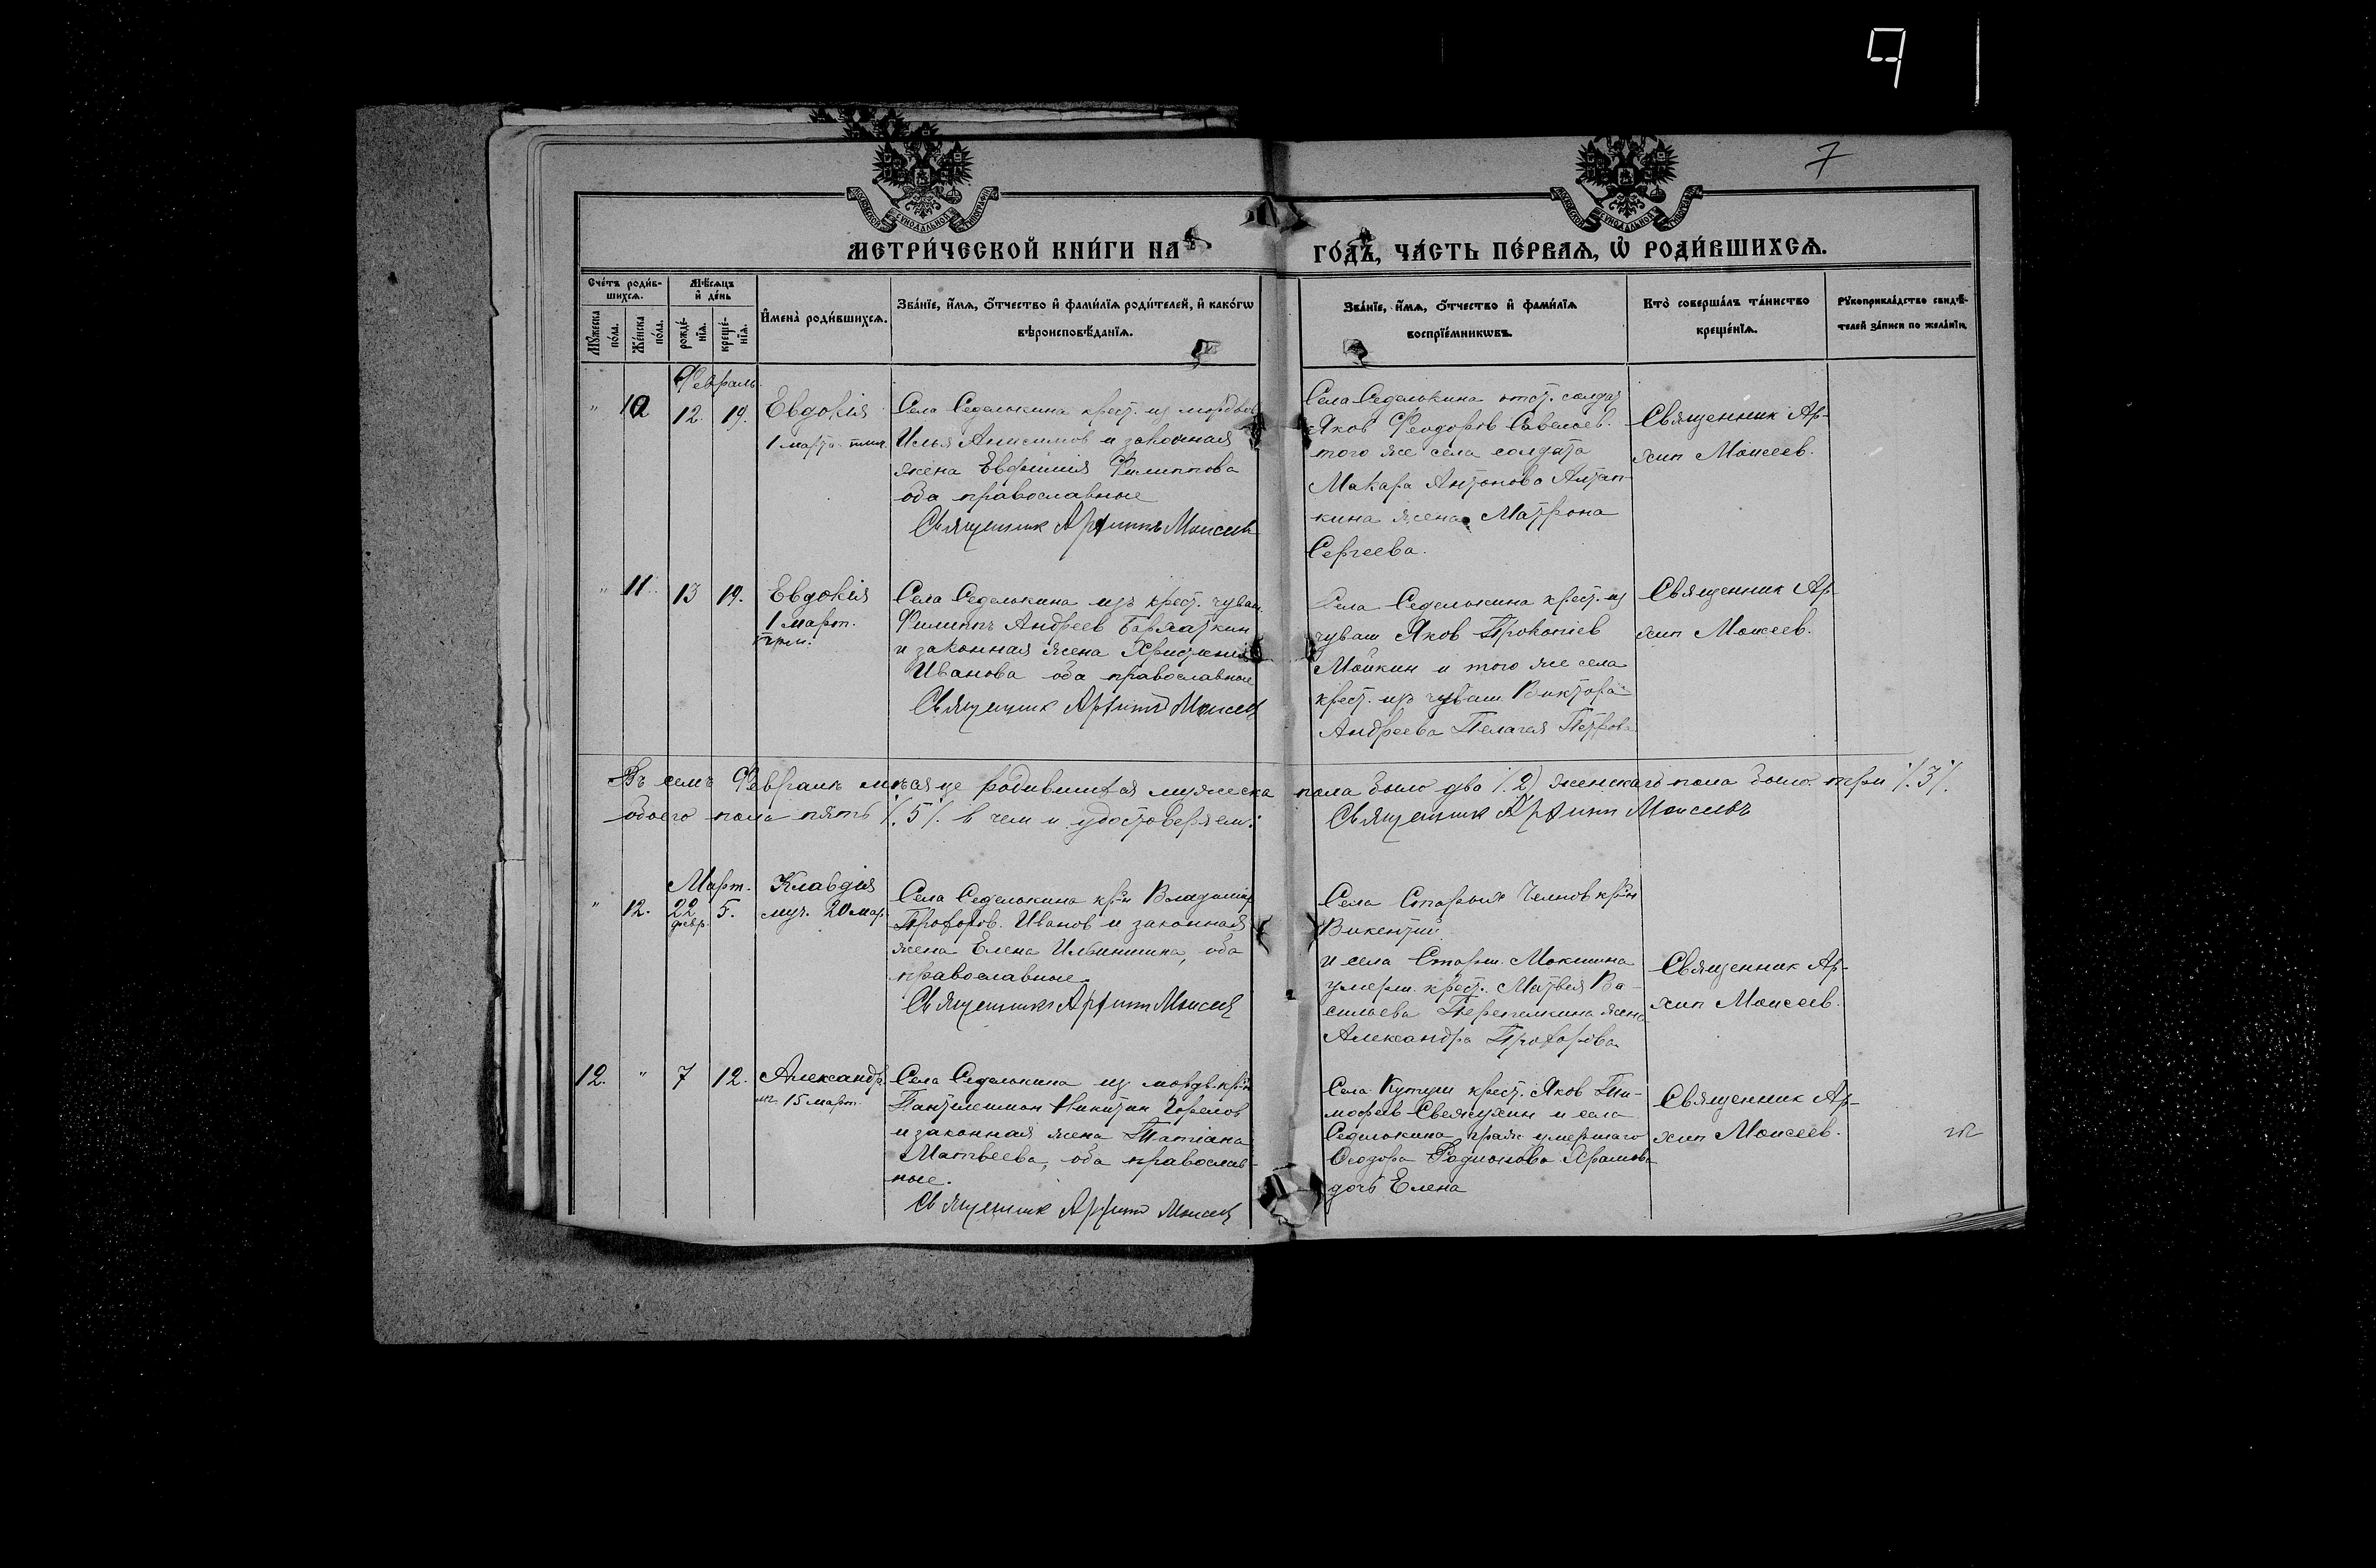 9
7
МОСКОВСКОЙ СѴНОДАЛЬНОЙ ТИПОГРАФІИ
МОСКОВСКОЙ СѴНОДАЛЬНОЙ ТИПОГРАФІИ
МЕТРИ́ЧЕСКОЙ КНИ́ГИ НА ГО́ДЪ, ЧА́СТЬ ПЕ́РВАѦ, Ѡ҆ РОДИ́ВШИХСѦ.
Сче́тъ роди́в-
шихсѧ.
Мѣ́сѧцъ
и҆ де́нь
Мꙋ́жеска
по́ла.
Же́нска
по́ла.
рожде́-
нїѧ.
креще́-
нїѧ.
И҆мена̀ роди́вшихсѧ.
Зва́нїе, и҆́мѧ, ѻ҆́тчество и҆ фамѝлїѧ роди́телей, и҆ како́гѡ
вѣроисповѣ́данїѧ.
Зва́нїе, и҆́мѧ, ѻ҆́тчество и҆ фамѝлїѧ
воспрїе́мникѡвъ.
Кто̀ соверша́лъ та́инство
креще́нїѧ.
Рꙋкоприкла́дство свидѣ́-
телей за́писи по жела́нїю.
Февраль.
" 10 12. 19. Евдокія
1 марта
Села Седелькина крест. из мордвов
Илья Анисимов и законная
жена Евфимия Филиппова
оба православные
Священник Архипъ Моисеев
Села Седелькина отст. солдат
Яков Феодоров Савельев.
того же села солдата
Макара Антонова Алтап-
кина жена Матрона
Сергеева.
Священник Ар-
хип Моисеев.
" 11. 13 19. Евдокія
1 март.
Села Седелькина изъ крест. чуваш
Филиппъ Андреев Бархаткин
и законная жена Христина
Иванова оба православные
Священник Архипъ Моисеев
Села Седелькина крест. из
чуваш Яков Прокопіев
Мойкин и того же села
крест. изъ чуваш Виктора
Андреева Пелагея Петрова
Священник Ар
хип Моисеев.
Въ семъ Февралѣ мѣсяце родившихся мужеска пола было два /.2) женскаго пола было три /.3/.
обоего пола пять /.5/. в чем и удостоверяем:
Священник Архип Моисеевъ
Март.
" 12. 22 февр. 5. Клавдія
муч. 20 мар.
Села Седелькина кр-н Владимир
Прохоров. Иванов и законная
жена Елена Ильинична, оба
православные.
Священникъ Архип Моисеев
Села Старых Челнов кр-н
Викентий
и села Стары. Мокшина
умерш. крест. Матвея Ва-
сильева Перепелкина жена
Александра Прохорова
Священник Ар-
хип Моисеев.
12. " 7 12. Александр.
15 март.
Села Седелькина из мордв. кр-н
Пантелеимон Никитин Горелов
и законная жена Татіана
Матвеева, оба православ-
ные.
Священник Архип Моисеев
Села Кутуши крест. Яков Ти-
мофеев и села
Седелькина умершаго
Феодора Родионова Храмова
дочь Елена
Священник Ар-
хип Моисеев.